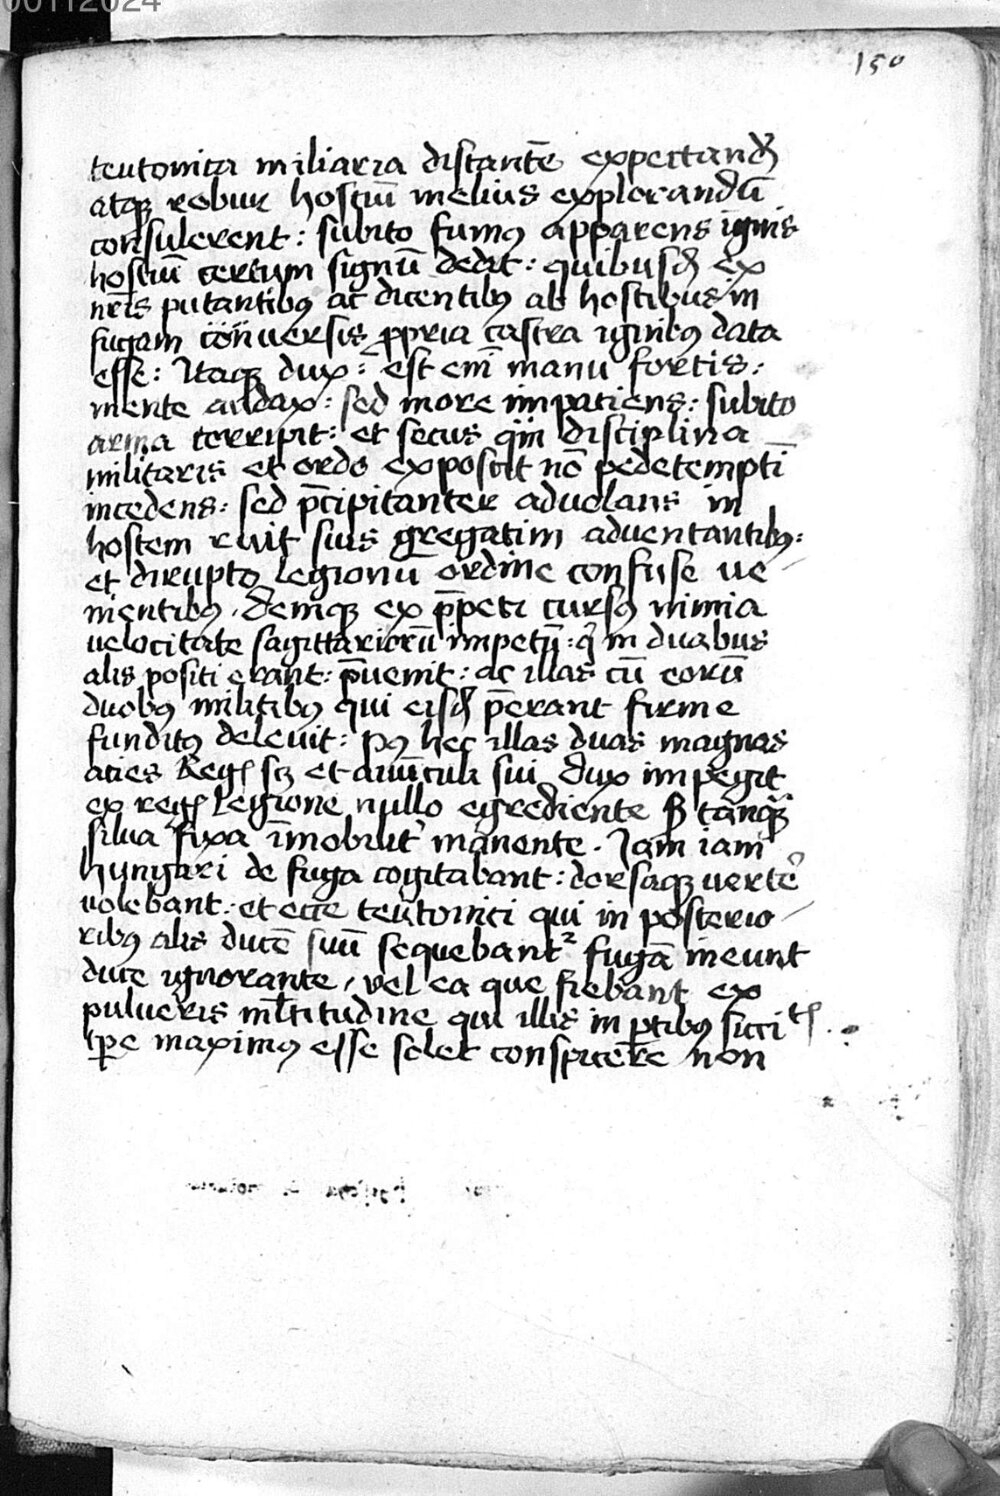 00112024
150
teutonica miliaria distantē expectandū
atqꝫ robur hostiū melius explorandū
consulerent: subito fumꝰ apparens ignis
hostiū certum signū dedit: quibusdꝫ ex
nrīs putantibꝰ ac dicentibꝰ ab hostibus in
fugam conversis ꝓpria castra ignibꝰ data
esse: Itaqꝫ dux: est eīm manu fortis:
mente audax: sed more impatiens: subito
arma cerripit: et secus qm̄ disciplina
militaris et ordo exposcit nō pedetemptī
incedens: sed p̄cipitanter advolans in
hostem ruit suis gregatim adventantibꝰ:
et dirupto legionū ordine confuse ve
nientibꝰ. Demqꝫ ex p̄peti cursꝰ nimia
velocitate sagittariorū impetū: q̇ in duabus
alis positi erant: p̄uenit: ac illas cū eorū
duobꝰ militibꝰ qui eisdꝫ p̄erant firme
funditꝰ delevit: pꝰ hec illas duas magnas
acies Regꝭ scꝫ et avūculi sui dux impegit
ex regꝭ legione nullo egrediente sꝫ tanqꝫ
silva fixa īmobilit᷑ manente. Jam iam
hungari de fuga cogitabant: dorsaqꝫ verte᷑
volebant: et ecce teutonici qui in posterio
ribꝰ alis ducē suū sequebant᷑ fugā ineunt
duce ignorante, vel ea que fiebant ex
pulueris ml̄titudine qui illis in ꝑtibꝰ siccitꝭ
tp̄e maximꝰ esse solet conspicere non